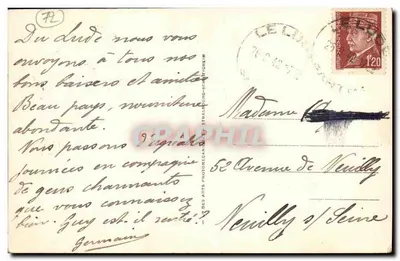 72
Du Lude nous vous
envoyons à tous nos
bons baisers et amitiés
Beau pays, nourriture
abondante.
Nous passons d'agréables
journées en compagnie
de gens charmants
que vous connaissez
bien. Guy est-il rentré ?
Germain
LE LUDE
LE LUDE
1F20
Madame
52 Avenue de Neuilly
Neuilly s/ Seine
CARTORUM